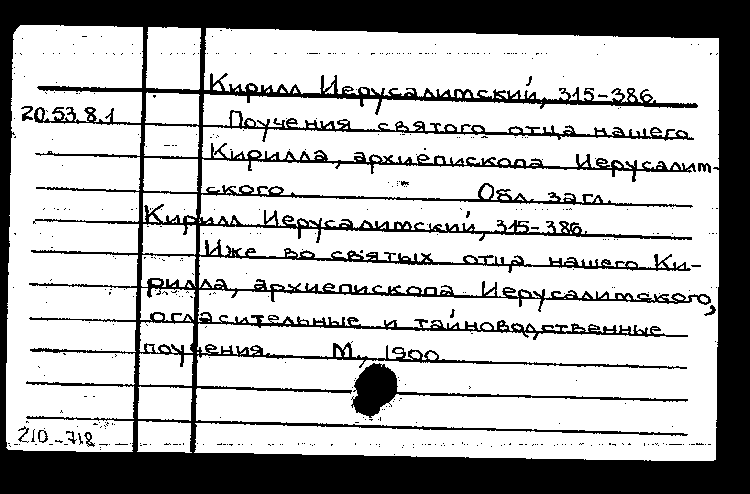 Кирилл Иерусалимский, 315-386.
20.53.8.1 Поучения святого отца нашего
Кирилла, архиепископа Иерусалим-
ского. Обл. загл.
Кирилл Иерусалимский, 315-386.
Иже во святых отца нашего Ки-
рилла, архиепископа Иерусалимского,
огласительные и тайноводственные
поучения. М., 1900
210-718